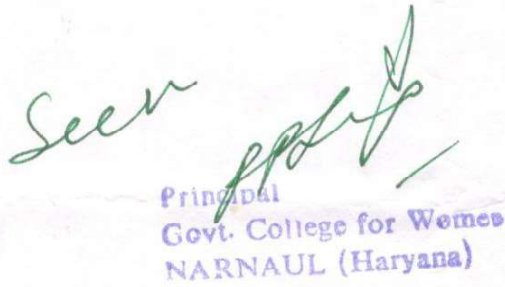 Seen
Principal
Govt. College for Women
NARNAUL (Haryana)